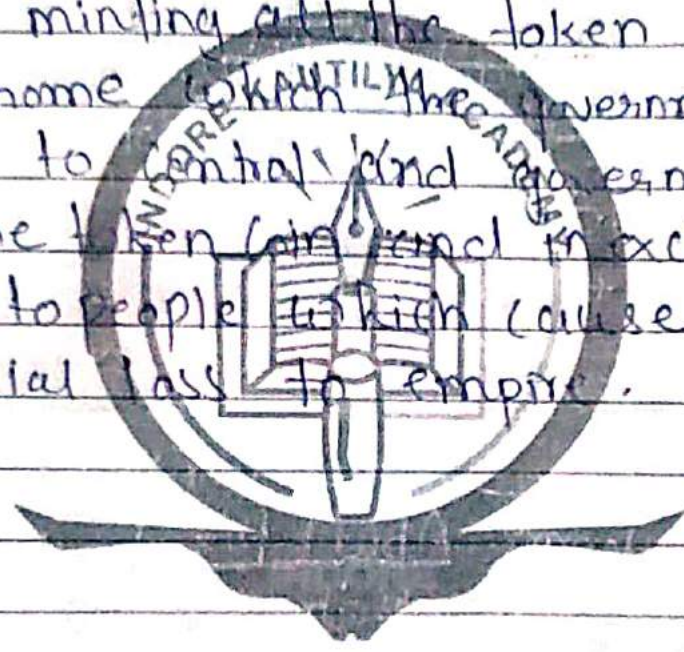 minting all the token
home which the governm
to central and governm
e token coin and in exc
to people which cause
ial loss to empire.
INDORE KAUTILYA ACADEMY